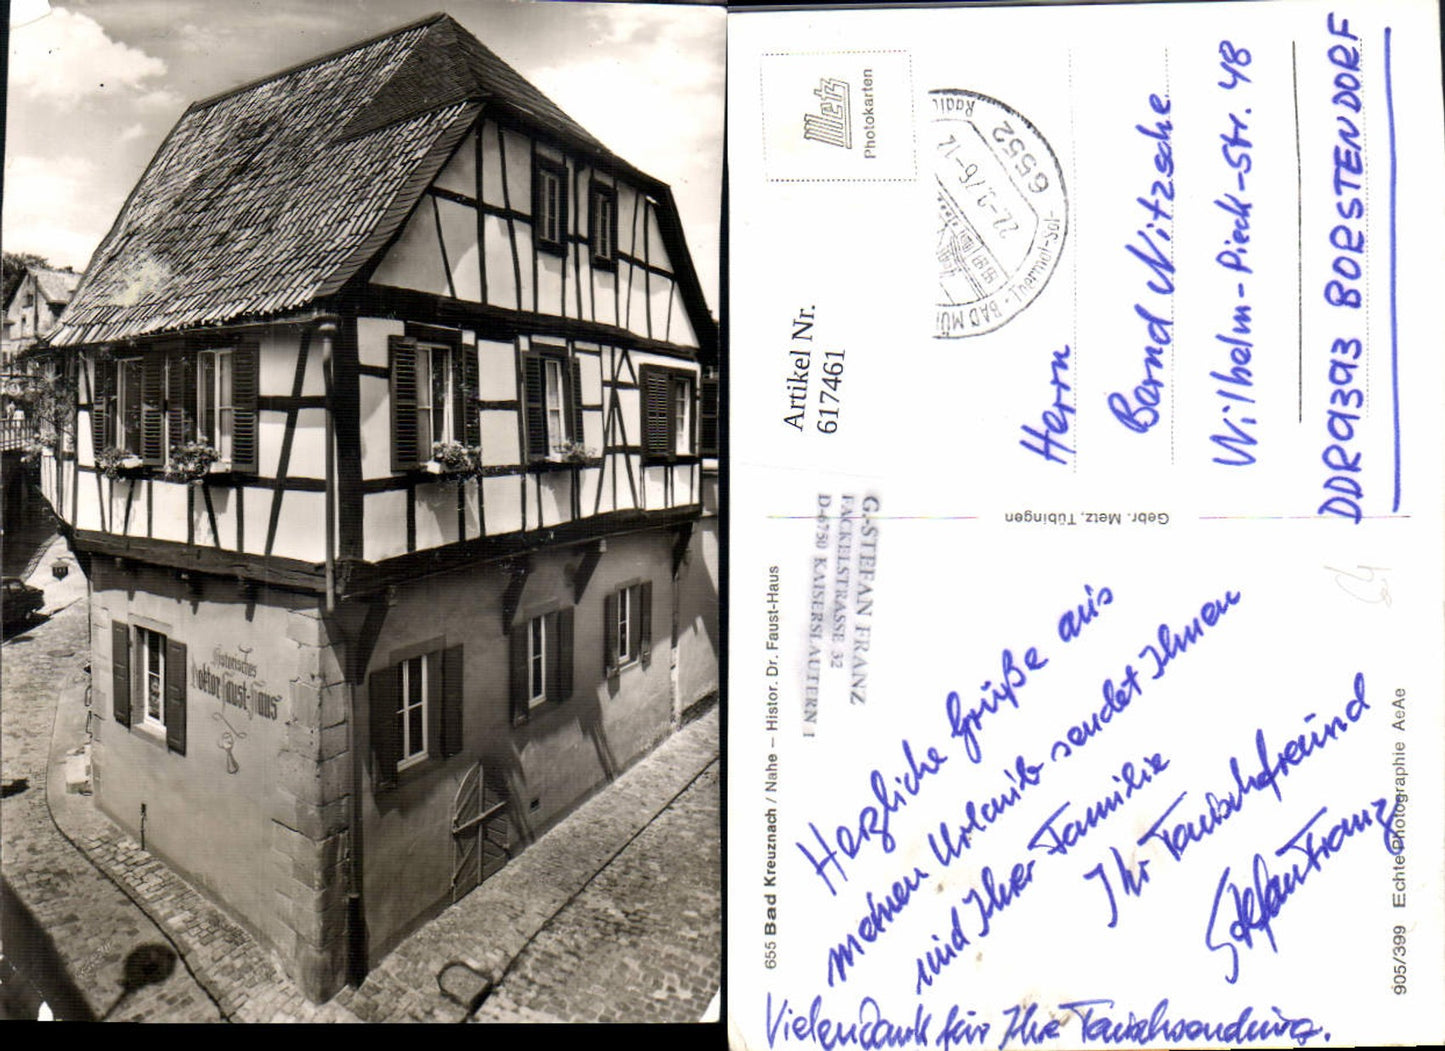 Historisches
Doktor Faust-Haus
Metz
Photokarten
Artikel Nr.
6617461
6552
22.-9.76-14
BAD MÜ
Thermal-Sol-
Radi
Herrn
Bernd Nitzsche
Wilhelm-Pieck-Str. 48
DDR 9393 BORSTENDORF
Gebr. Metz, Tübingen
G.-STEFAN FRANZ
FACKELSTRASSE 32
D-6750 KAISERSLAUTERN 1
655 Bad Kreuznach / Nahe – Histor. Dr. Faust-Haus
Herzliche Grüße aus
meinen Urlaub sendet Ihnen
und Ihrer Familie
Ihr Tauschfreund
Stefan Franz
Vielen Dank für Ihre Tauschsendung.
905/399 Echte Photographie AeAe